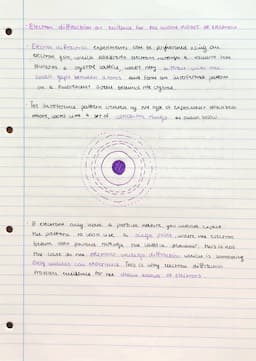 Electron diffraction as evidence for the wave nature of electrons
· Electron diffraction experiments can be performed using an
electron gun, which accelerates electrons through a vacuum
a crystal lattice, they interact with the
small gaps between atoms and form an interference pattern
on a fluorescent screen behind the crystal.
· The interference pattern created by the type of experiment described
above, looks like a set of concentric rings, as shown below
· If electrons only have a particle nature, you would expect
the pattern to look like a single point, where the electron
beam passes through the lattice. This is not
the case as the electrons undergo diffraction which is something
only waves can experience. This is why electron diffraction
provides evidence for the wave nature of electrons.